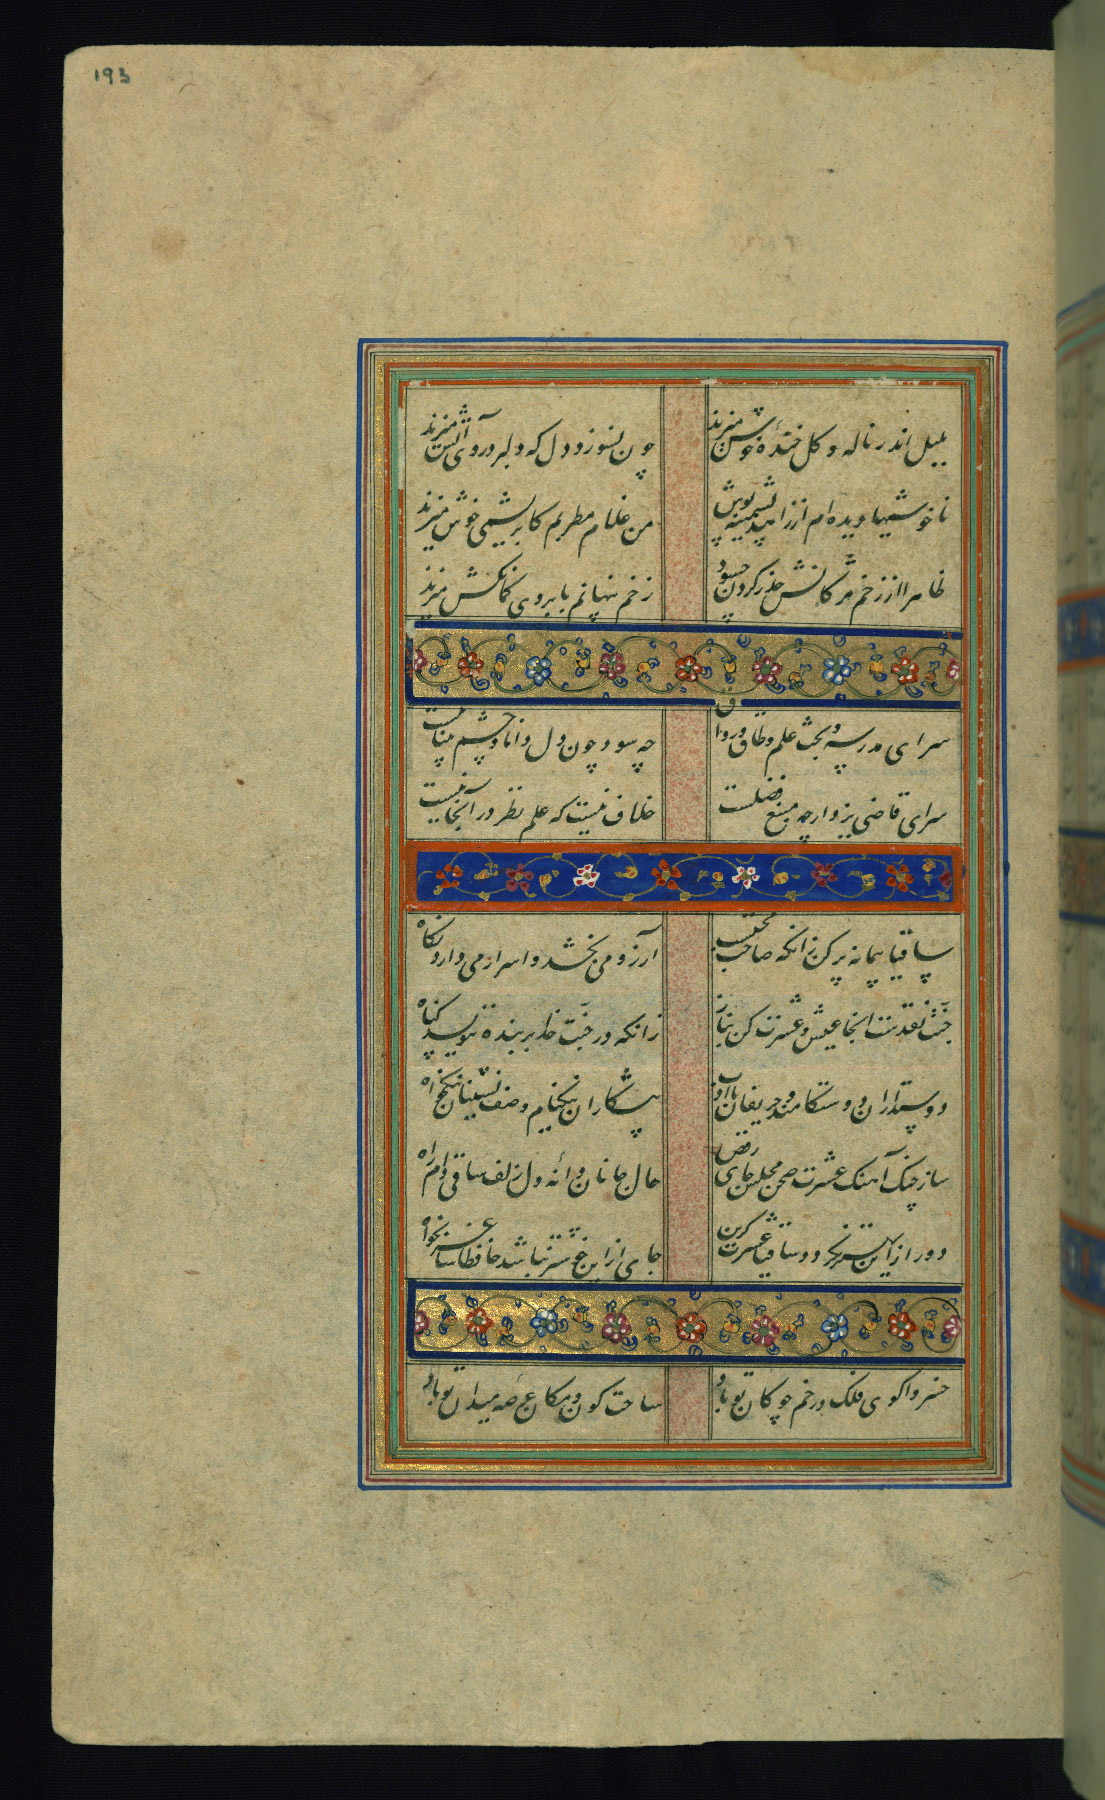 ۱۹۳
بلبل اندر ناله و کل خندهٔ خوش میزند
چون نسوزد دل که دلبر در وی آتش میزند
ناخوشیها دیده‌ام از زاهد پشمینه پوش
من غلام مطربم کابریشمی خوش میزند
ظاهرا از زخم مژکانش حذر کردن چه سود
زخم پنهانم بابروی کمانکش میزند
سرای مدرسه و بحث علم و طاق و رواق
چه سود چون دل دانا و چشم بینا نیست
سرای قاضی یزد ارچه منبع فضلست
خلاف نیست که علم نظر در آنجا نیست
ساقیا پیمانه پر کن زانکه صاحب مجلست
آرزو می بخشد و اسرار می دارد نکاه
جنت نقدست اینجا عیش و عشرت کن بناز
زانکه در جنت خدا بر بنده ننویسد کناه
دوستداران دوستکامند و حریفان با ادب
پیشکاران نیکنام و صف نشینان نیکخواه
ساز چنک آهنک عشرت صحن مجلس جای رقص
خال جانان دانه دل زلف ساقی دام راه
دور ازین بهتر نکردد ساقیا عشرت کزین
جای ازین خوشتر نباشد حافظا ساغر بخواه
خسروا کوی فلک در خم چوکان تو باد
ساحت کون و مکان عرصه میدان تو باد